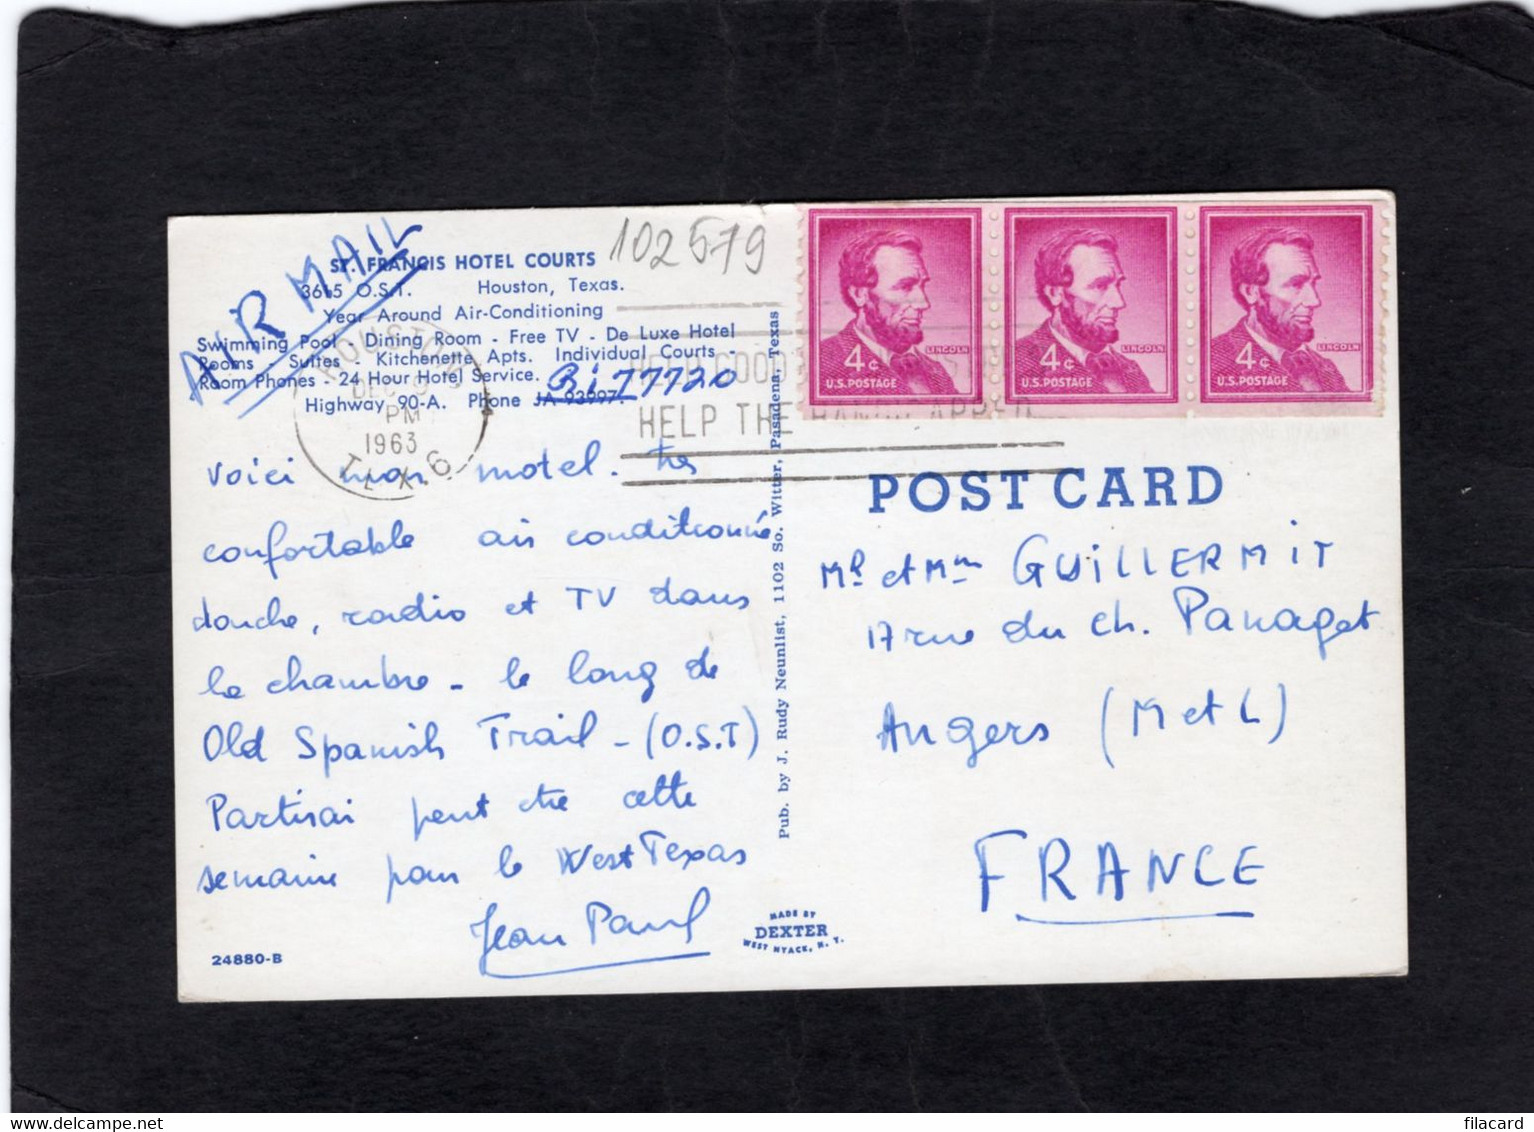 AIR MAIL
102579
ST. FRANCIS HOTEL COURTS
3615 O.S.T. Houston, Texas.
Year Around Air-Conditioning
Swimming Pool - Dining Room - Free TV - De Luxe Hotel
Rooms Suites - Kitchenette Apts. Individual Courts
Room Phones - 24 Hour Hotel Service.
Highway 90-A. Phone JA 93997.
Ri 77720
HOUSTON
DEC
PM
1963
TEX 6
HELP GOOD
HELP THE HANDICAPPED
4¢ LINCOLN
U.S. POSTAGE
4¢ LINCOLN
U.S. POSTAGE
4¢ LINCOLN
U.S. POSTAGE
Voici mon motel. Très
confortable air conditionné
douche, radio et TV dans
la chambre - le long de
Old Spanish Trail - (O.S.T)
Partirai peut être cette
semaine pour le West Texas
Jean Paul
24880-B
Pub. by J. Rudy Neunlist, 1102 So. Witter, Pasadena, Texas
MADE BY
DEXTER
WEST NYACK, N. Y.
POST CARD
Mr et Mme GUILLERMIT
17 rue du ch. Panaget
Angers (M et L)
FRANCE
filacard